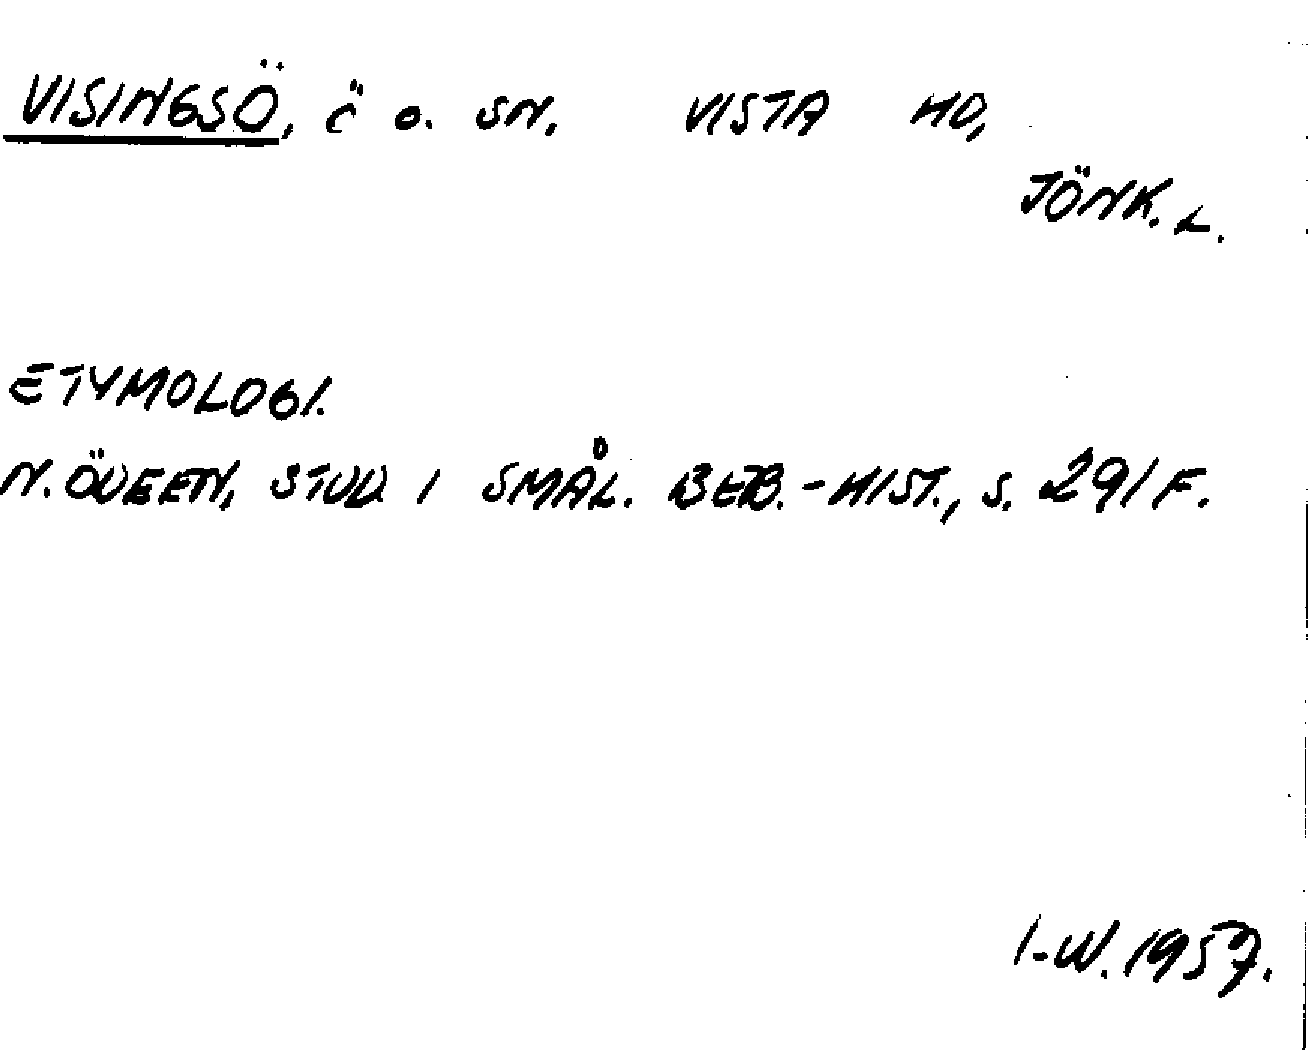 VISINGSÖ, Ö o. SN. VISTA HD,
JÖNK. L.
ETYMOLOGI.
N. ÖDEEN, STUD I SMÅL. BEB.-HIST., S. 291 F.
I-W. 1957.